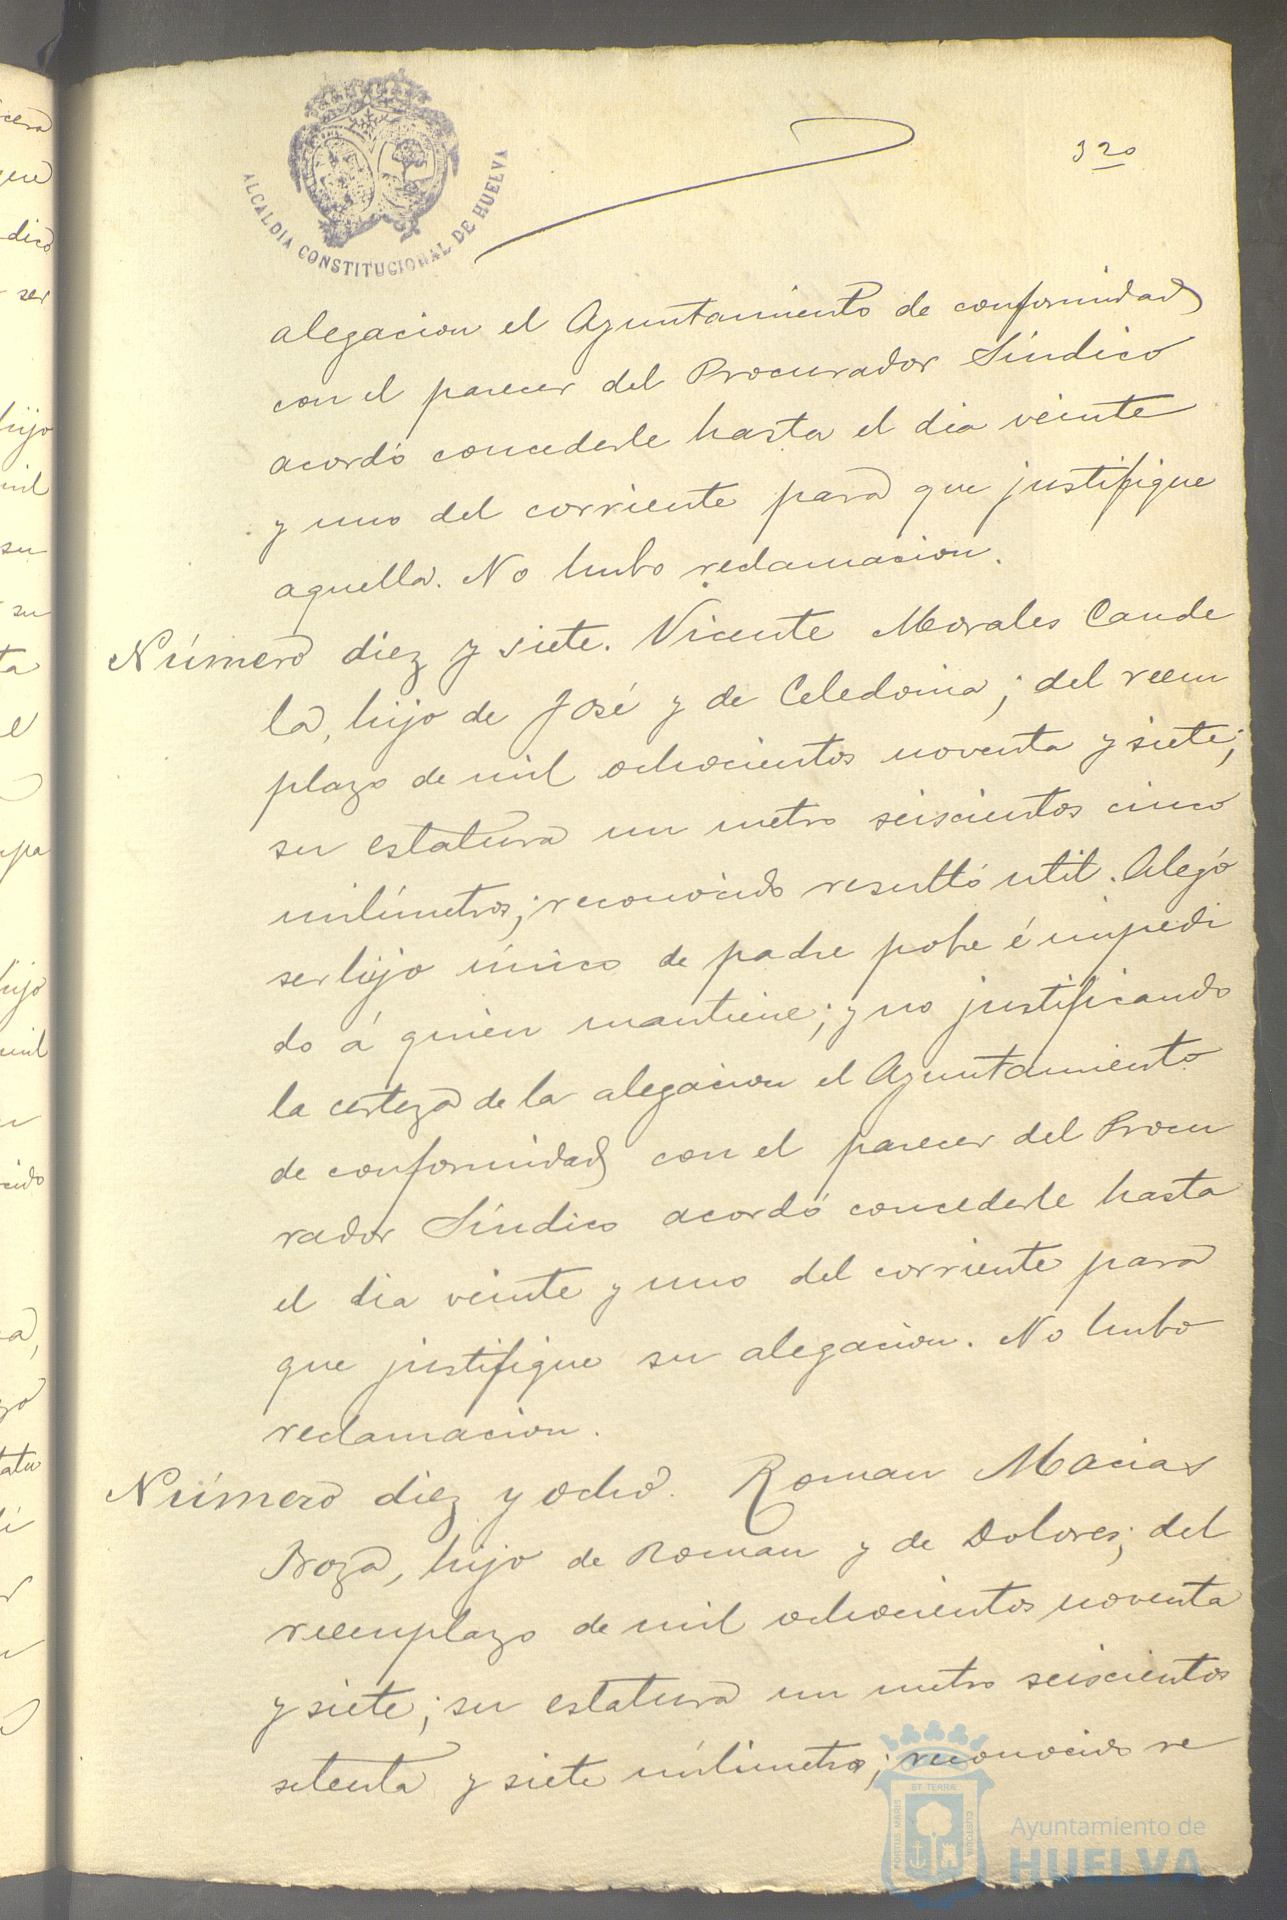 ALCALDIA CONSTITUCIONAL DE HUELVA
320
alegacion el Ayuntamiento de conformidad
con el parecer del Procurador Síndico
acordó concederle hasta el dia veinte
y uno del corriente para que justifique
aquella. No hubo reclamacion.
Número diez y siete. Vicente Morales Cande
la, hijo de José y de Celedonia; del reem
plazo de mil ochocientos noventa y siete;
su estatura un metro seiscientos cinco
milímetros; reconocido resultó util. Alegó
ser hijo único de padre pobre é impedi
do á quien mantiene; y no justificando
la certeza de la alegacion el Ayuntamiento
de conformidad con el parecer del Procu
rador Síndico acordó concederle hasta
el dia veinte y uno del corriente para
que justifique su alegacion. No hubo
reclamacion.
Número diez y ocho. Roman Macias
hijo de Roman y de Dolores; del
reemplazo de mil ochocientos noventa
y siete; su estatura un metro seiscientos
setenta y siete milimetros; reconocido re
PORTUS MARIS ET TERRAE CUSTODIA
Ayuntamiento de
HUELVA